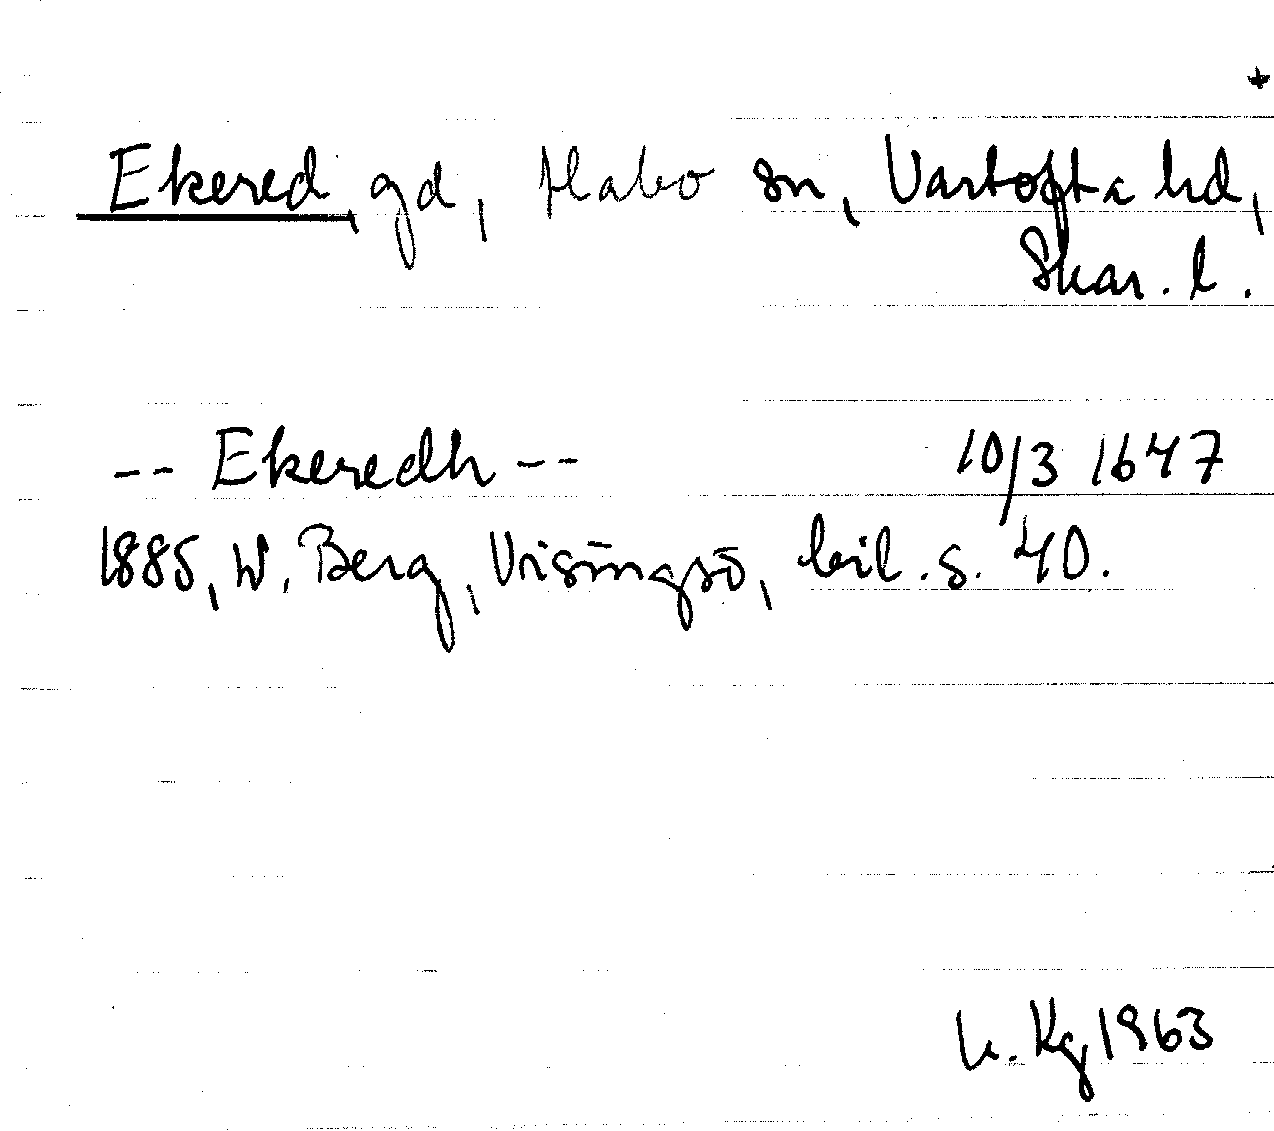 +
Ekered, gd, Habo sn, Vartofta hd,
Skar. l.
-- Ekeredh -- 10/3 1647
1885, W. Berg, Visingsö, bil. s. 40.
Kg 1963